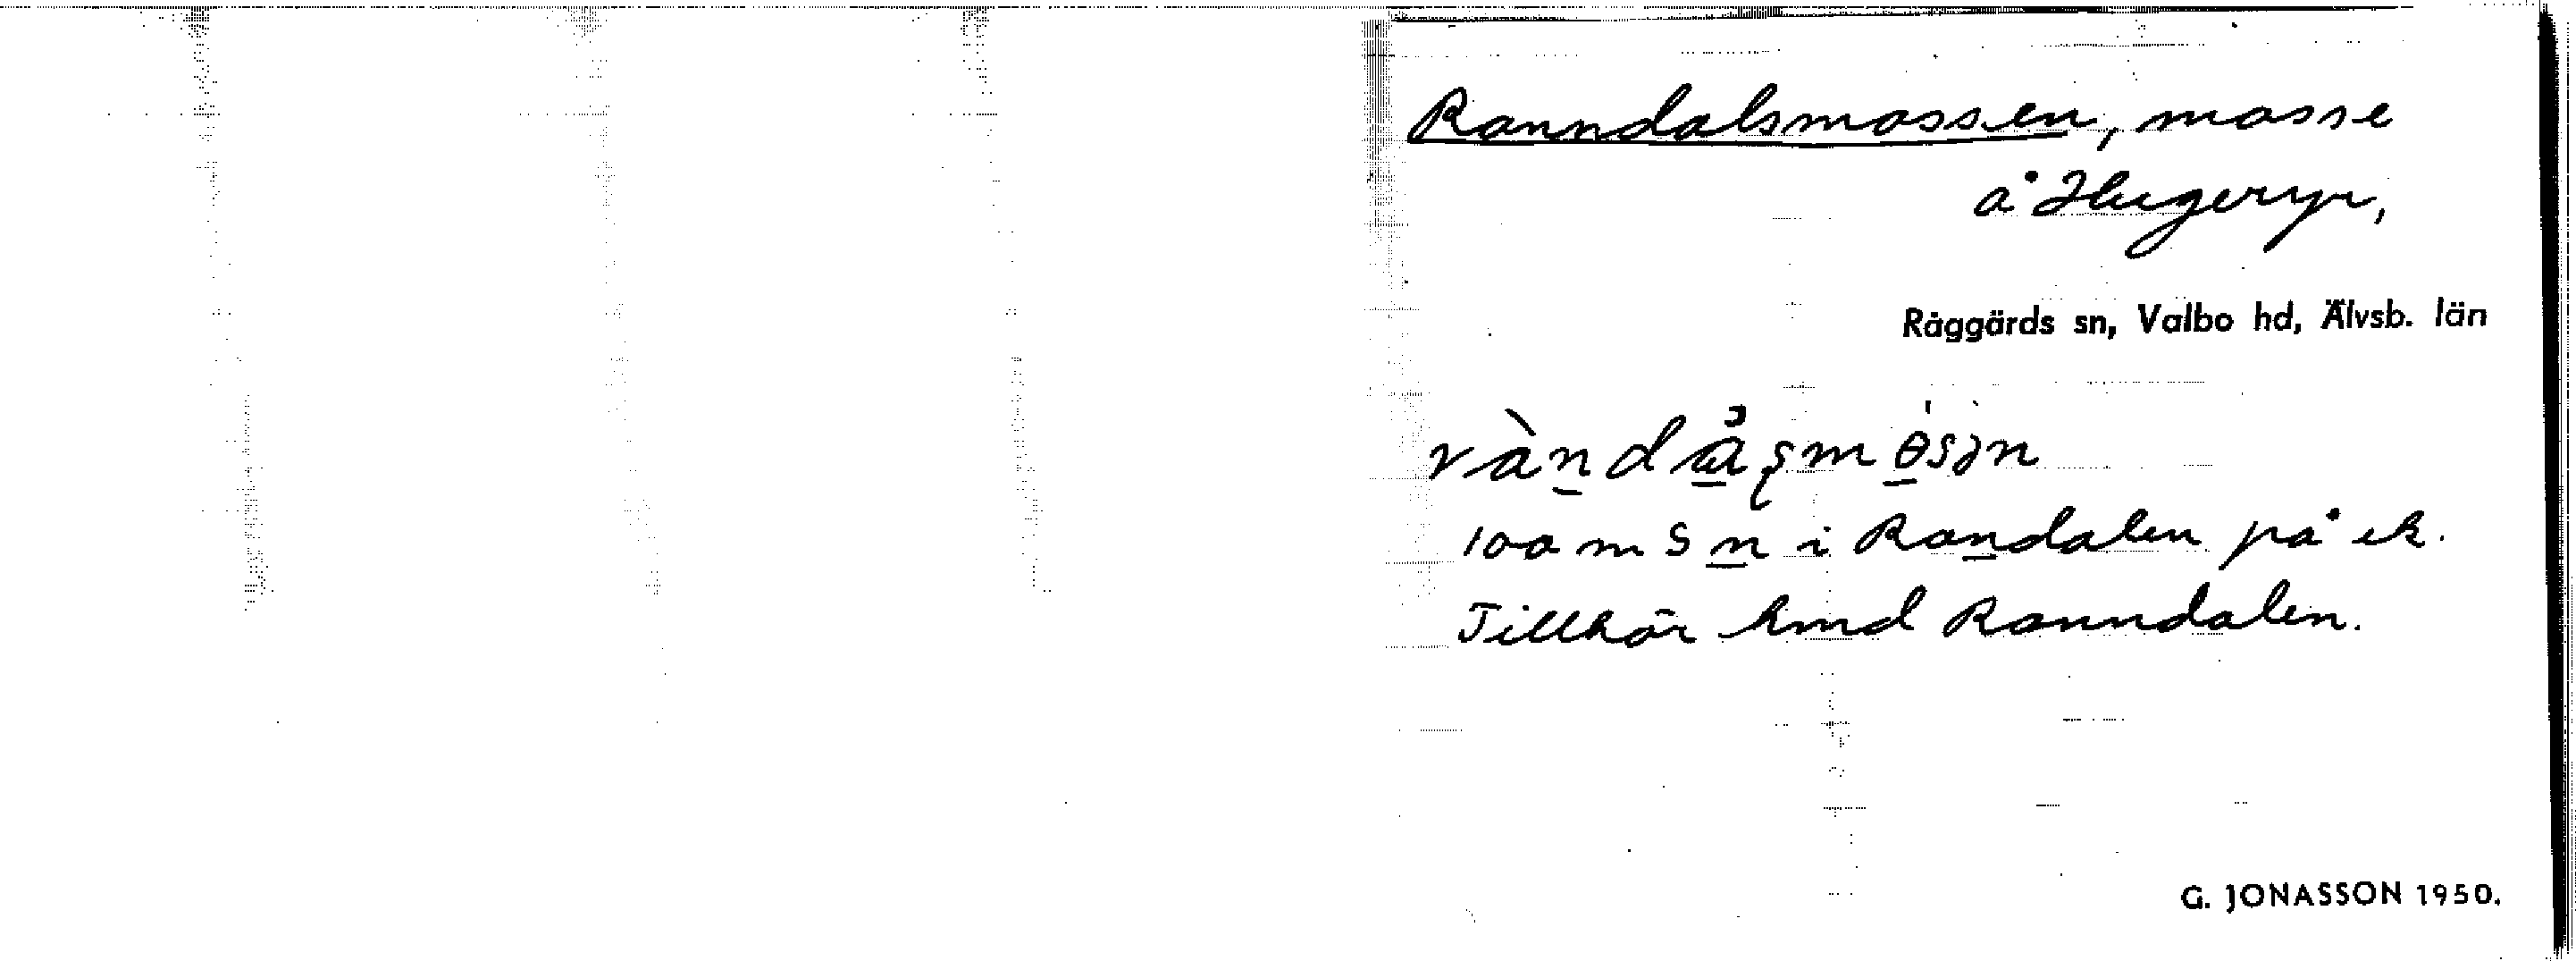 Ranndalsmossen, mosse
å Hugeryr,
Råggärds sn, Valbo hd, Älvsb. län
100 m S n i Randalen på ek.
Tillhör hmd Ranndalen.
G. JONASSON 1950.